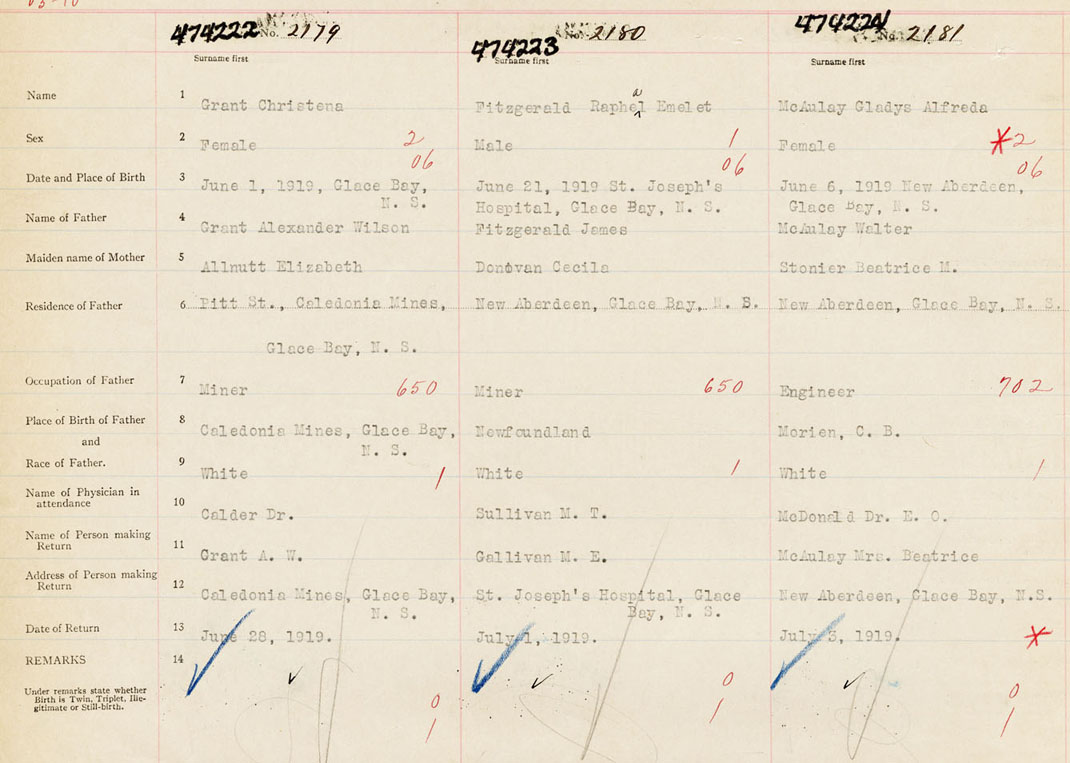 474222 No. 2179 474223 No. 2180 474224 No. 2181
Surname first Surname first Surname first
Name 1 Grant Christena Fitzgerald Raphael Emelet McAulay Gladys Alfreda
Sex 2 Female 2 Male 1 Female X2
06 06 06
Date and Place of Birth 3 June 1, 1919, Glace Bay, June 21, 1919 St. Joseph's June 6, 1919 New Aberdeen,
N. S. Hospital, Glace Bay, N. S. Glace Bay, N. S.
Name of Father 4 Grant Alexander Wilson Fitzgerald James McAulay Walter
Maiden name of Mother 5 Allnutt Elizabeth Donovan Cecila Stonier Beatrice M.
Residence of Father 6 Pitt St., Caledonia Mines, New Aberdeen, Glace Bay, N. S. New Aberdeen, Glace Bay, N. S.
Glace Bay, N. S.
Occupation of Father 7 Miner 650 Miner 650 Engineer 702
Place of Birth of Father 8 Caledonia Mines, Glace Bay, Newfoundland Morien, C. B.
and N. S.
Race of Father. 9 White 1 White 1 White 1
Name of Physician in
attendance 10 Calder Dr. Sullivan M. T. McDonald Dr. E. O.
Name of Person making
Return 11 Grant A. W. Gallivan M. E. McAulay Mrs. Beatrice
Address of Person making
Return 12 Caledonia Mines, Glace Bay, St. Joseph's Hospital, Glace New Aberdeen, Glace Bay, N.S.
N. S. Bay, N. S.
Date of Return 13 June 28, 1919. July 1, 1919. July 3, 1919. X
REMARKS 14
Under remarks state whether
Birth is Twin, Triplet, Ille-
gitimate or Still-birth.
0 0 0
1 1 1